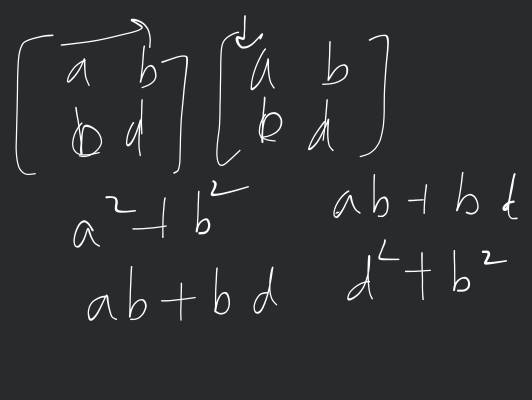 [a b] [a b]
[b d] [b d]
a² + b² ab + bd
ab + bd d² + b²